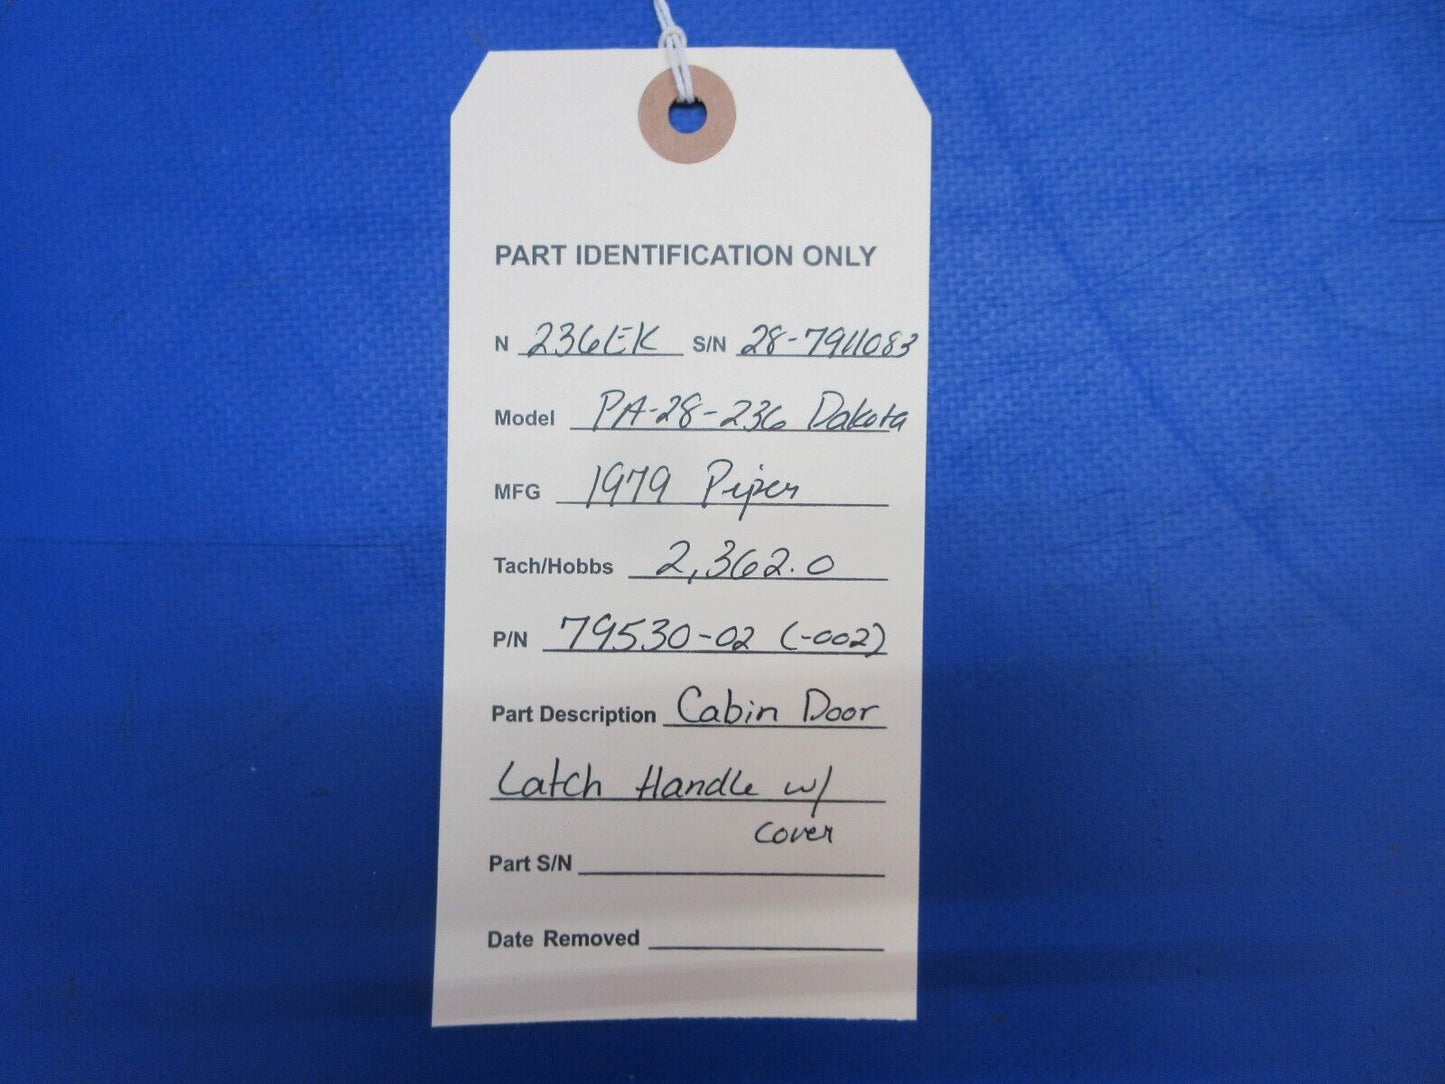 PART IDENTIFICATION ONLY
N 236EK S/N 28-7911083
Model PA-28-236 Dakota
MFG 1979 Piper
Tach/Hobbs 2,362.0
P/N 79530-02 (-002)
Part Description Cabin Door
Latch Handle w/
cover
Part S/N
Date Removed